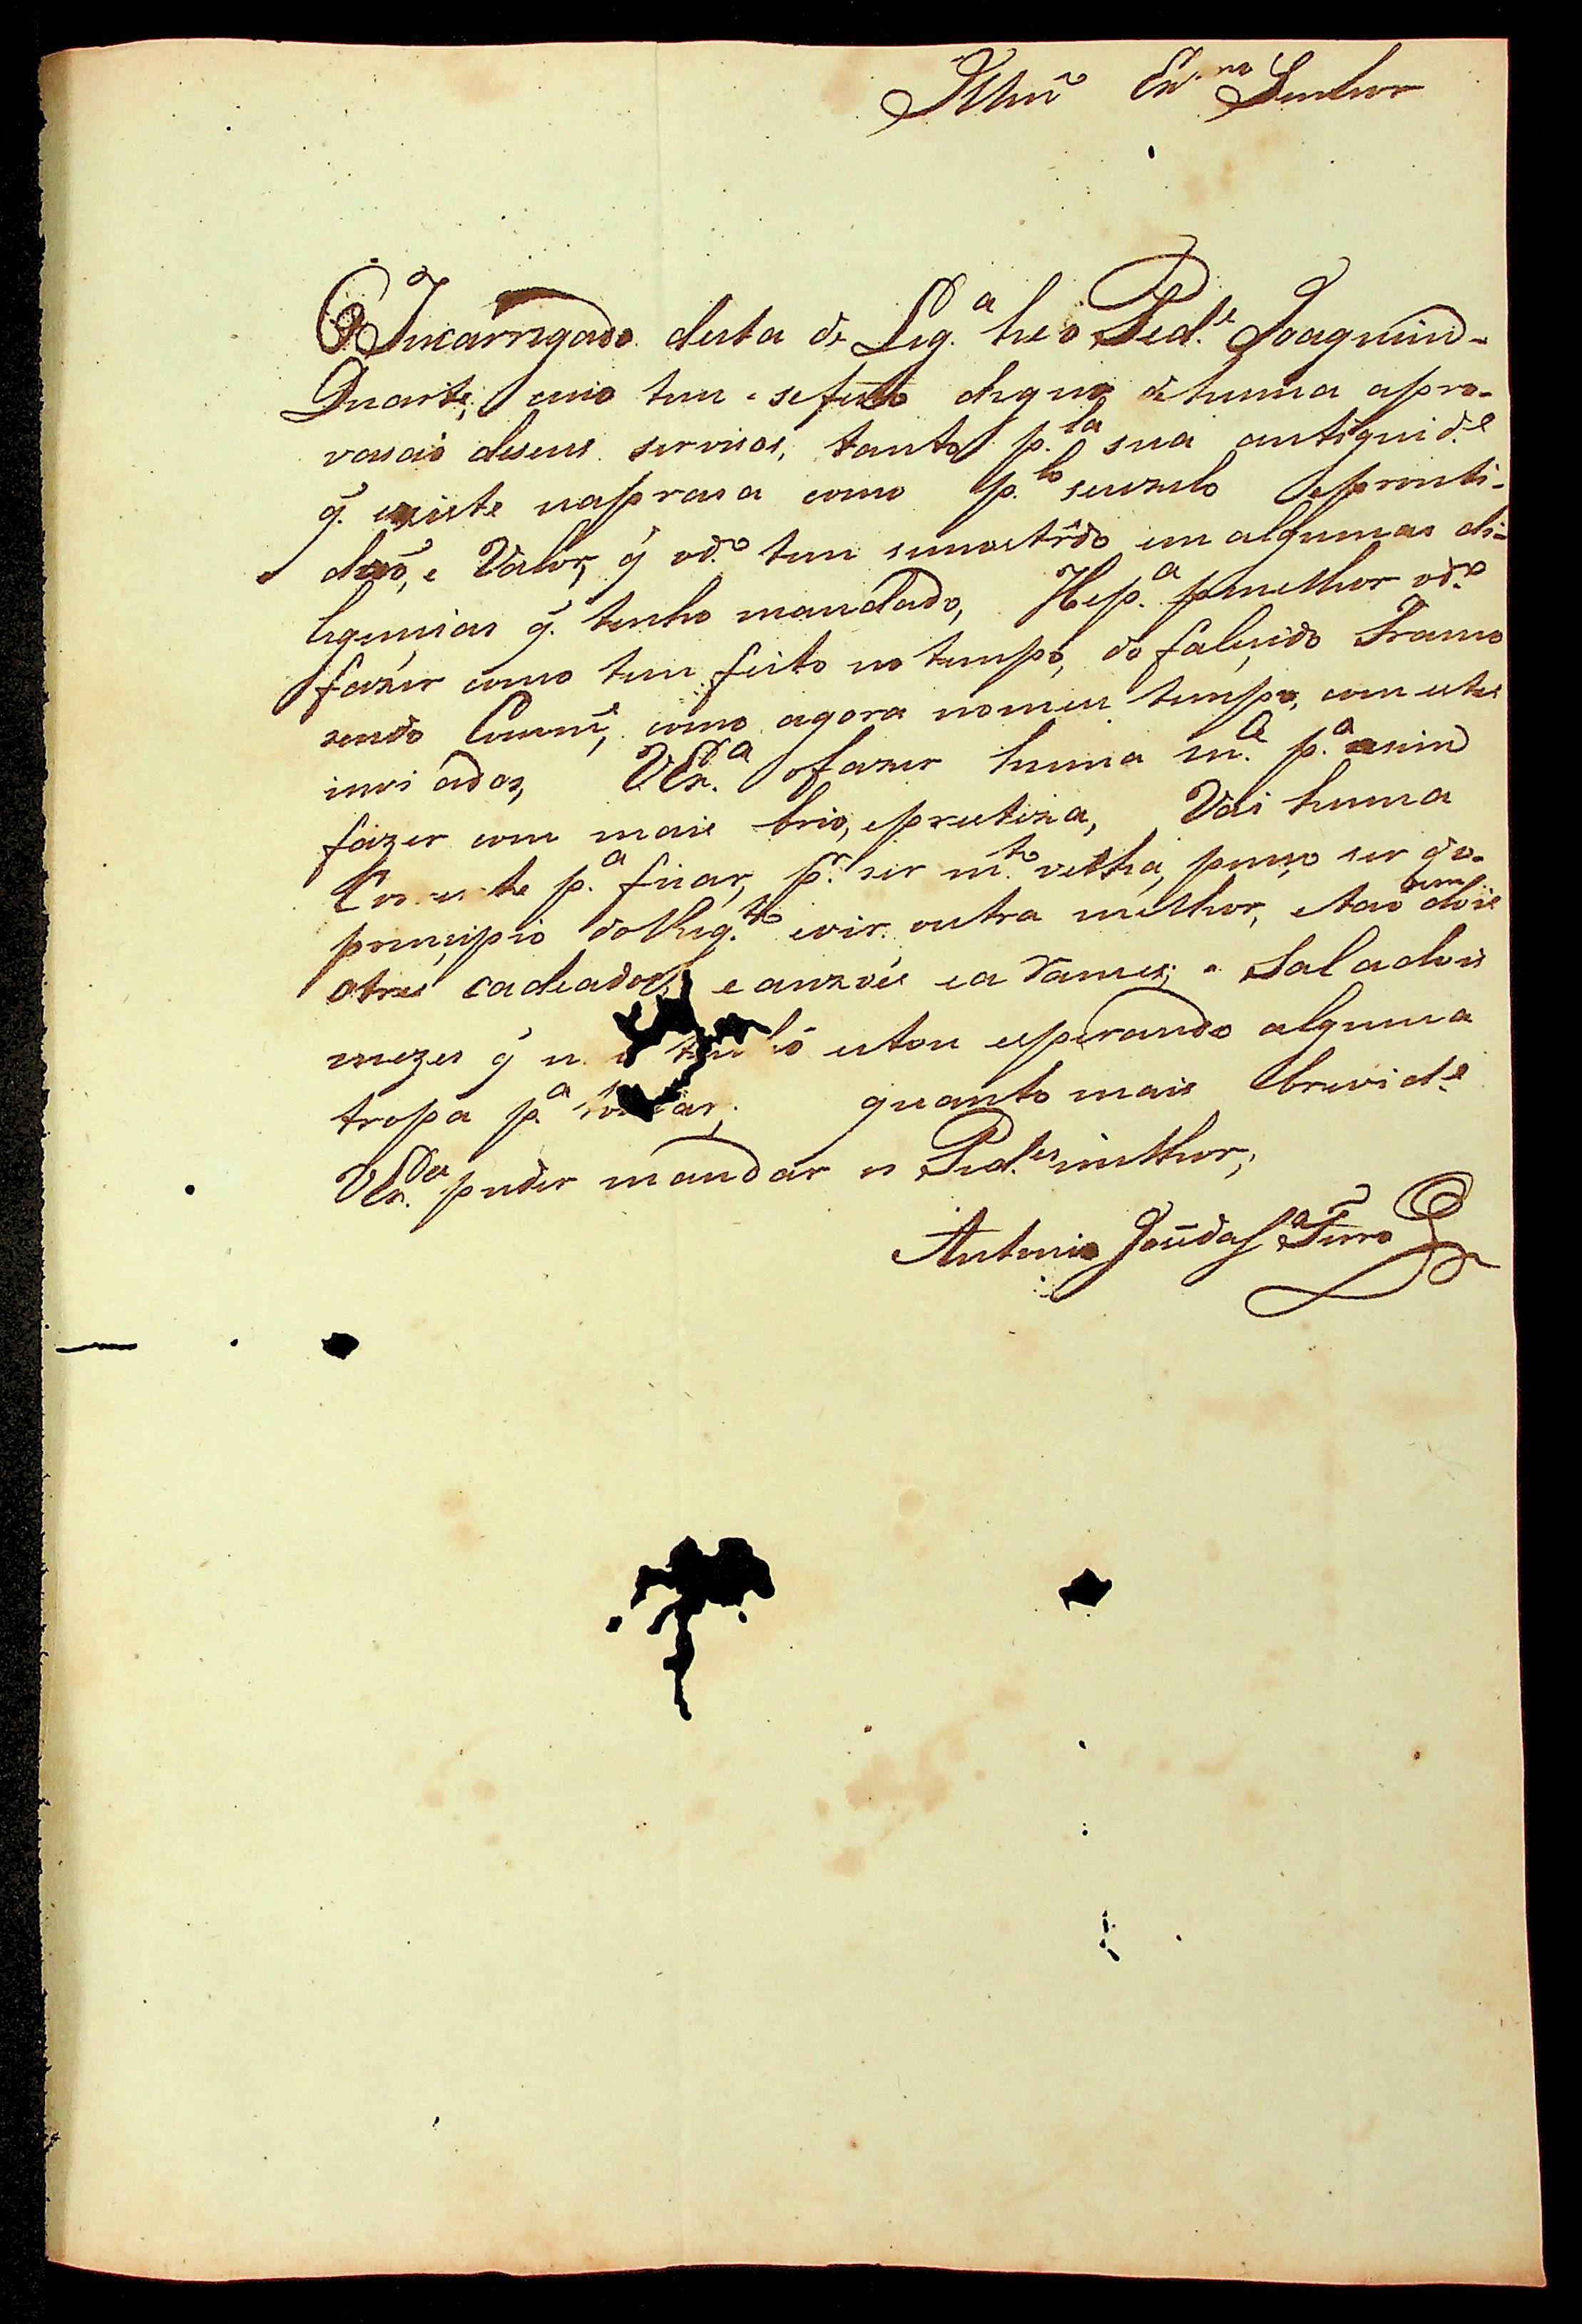 Illmº Exmº Senhor
O Incarregado desta de Lig.ª he o Ped.e Joaquim
Duarte, cuio tem se feito digno de huma apro-
vasaõ deseus servisos, tanto p.la sua antiguid.e
q̃. existe naprasa como p.lo seuzelo epronti-
daõ, e Valor, q̃ od.º tem em algumas di-
ligencias q̃. tenho mandado, Hep.ª pmelhor od.º
fazer como tem feito no tempo, do falecido Framo
sendo Comm.e, como agora nomeu tempo, com estes
inviados, VEx.ª ofazer huma m.ce p.ª asim
fazer com mais brio, epresteza, Vai huma
Corrente p.ª ficar, p.r ser m.to velha, penço ser do
principio doReg.to evir outra melhor, etaõ bem dois
otres cadeados, e anzóes earames; e Sal adois
mezes q̃ estou esperando alguma
tropa p.ª quanto mais brevid.e
VEx.ª puder mandar os Ped.es milhor,
Antonio José da S.ª Ferro